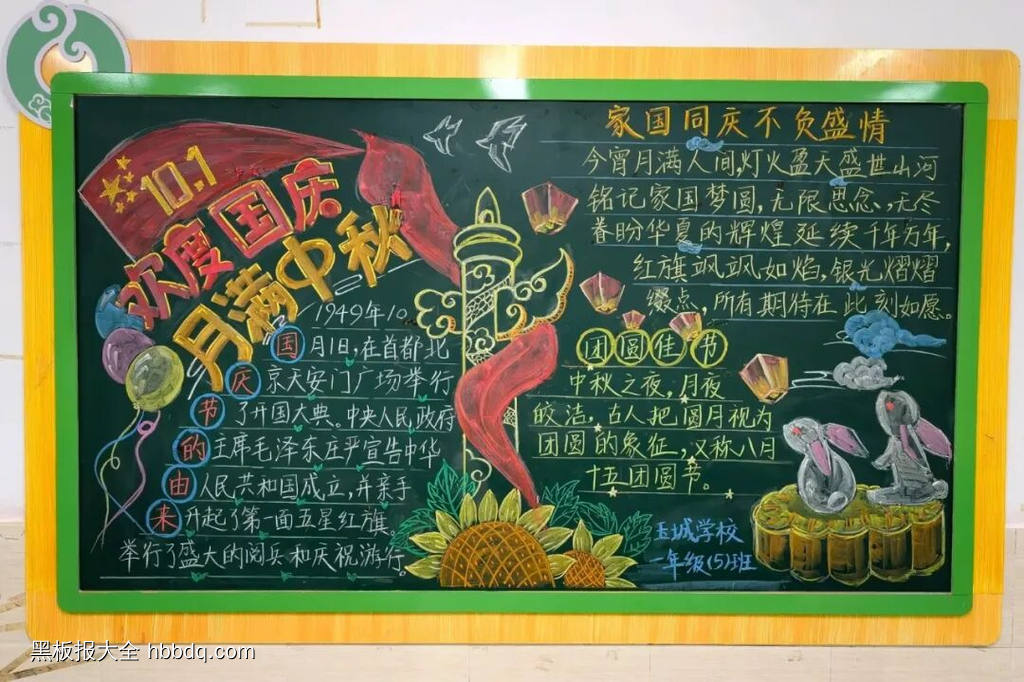 10.1
欢度国庆
月满中秋
国庆节的由来
1949年10
月1日,在首都北
京天安门广场举行
了开国大典。中央人民政府
主席毛泽东庄严宣告中华
人民共和国成立,并亲手
升起了第一面五星红旗,
举行了盛大的阅兵和庆祝游行。
家国同庆不负盛情
今宵月满人间,灯火盈天盛世山河
铭记家国梦圆,无限思念,无尽
眷盼华夏的辉煌延续千年万年,
红旗飒飒如焰,银光熠熠
缀点,所有期待在此刻如愿。
团圆佳节
中秋之夜,月夜
皎洁,古人把圆月视为
团圆的象征,又称八月
十五团圆节。
玉城学校
一年级(5)班
黑板报大全 hbbdq.com